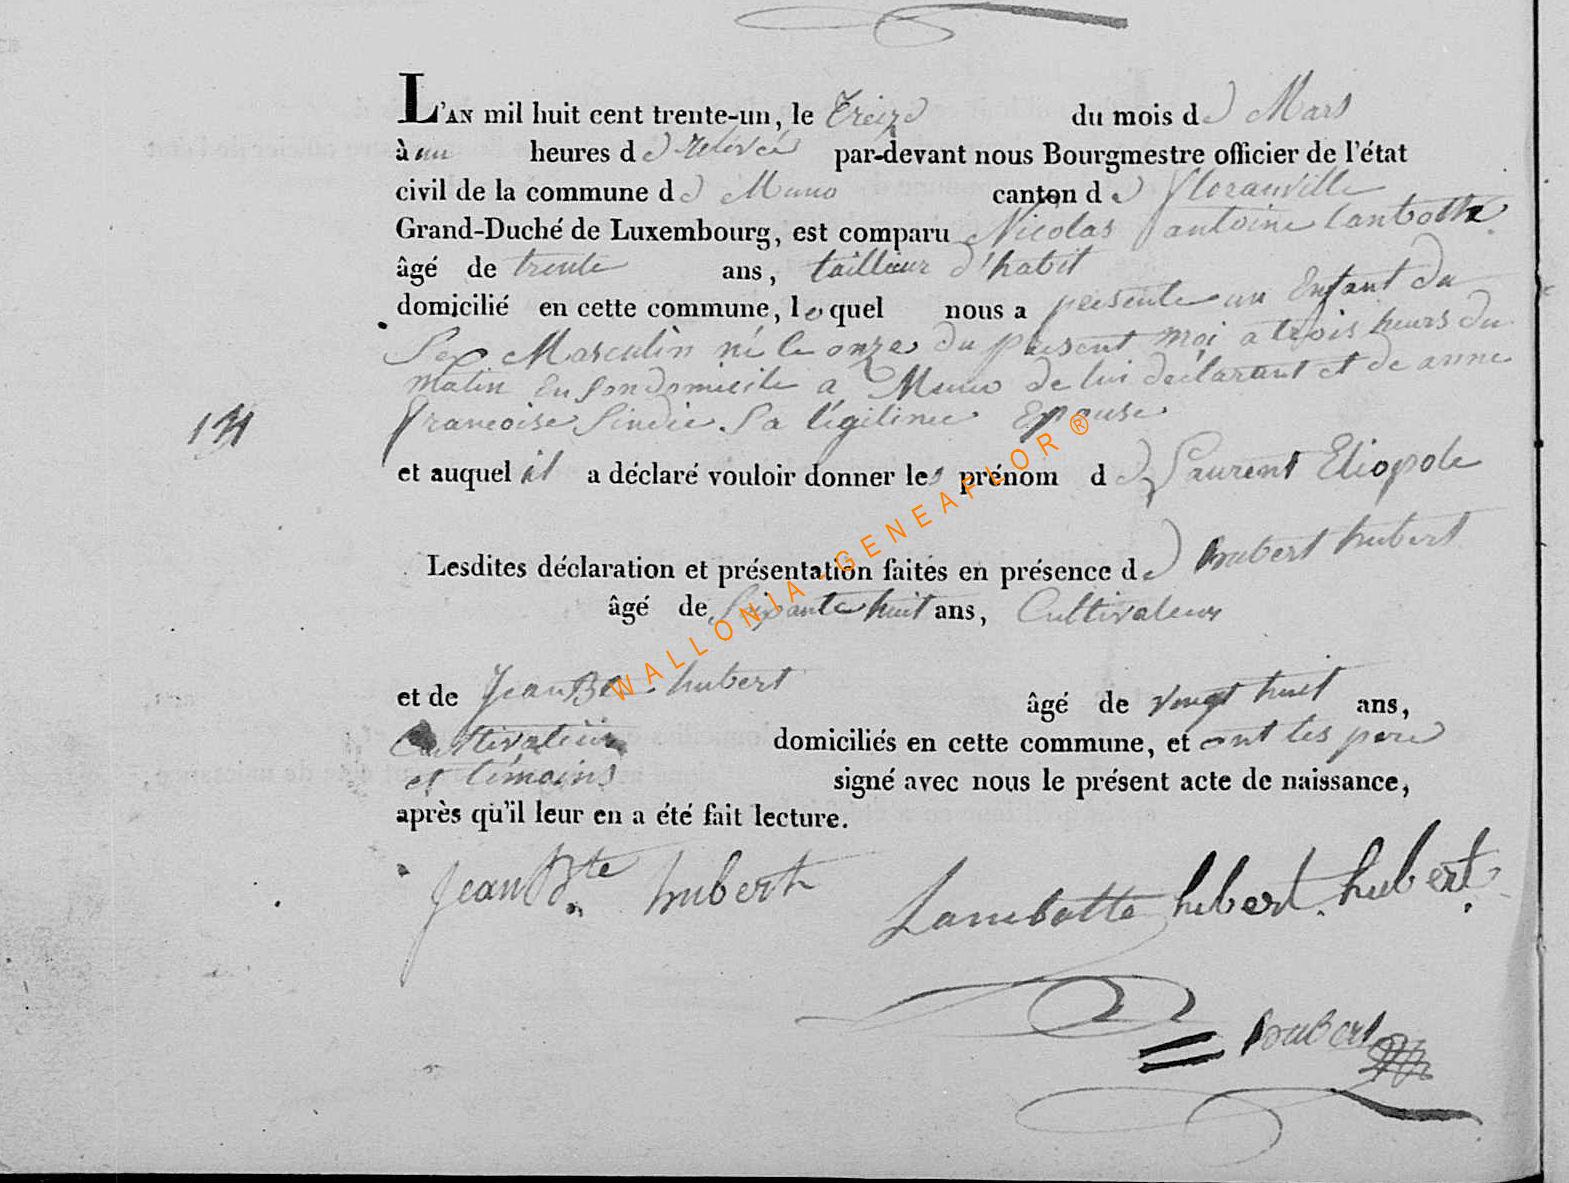 L'AN mil huit cent trente-un, le treize du mois de Mars
à un heures de relevée par-devant nous Bourgmestre officier de l'état
civil de la commune de Muno canton de Floranville
Grand-Duché de Luxembourg, est comparu Nicolas antoine Lambotte
âgé de trente ans, tailleur d'habit
domicilié en cette commune, lequel nous a presente un Enfant du
Sex Masculin né le onze du present moi a trois heurs du
matin en son domicile a Muno de lui declarant et de anne
françoise Sindic Sa légitime Epouse
131
et auquel il a déclaré vouloir donner les prénom de Laurent Eliopole
Lesdites déclaration et présentation faites en présence de hubert hubert
âgé de Soixante huit ans, Cultivateur
et de Jean Bte hubert âgé de vingt huit ans,
Cultivateur domiciliés en cette commune, et ont les pere
et témoins signé avec nous le présent acte de naissance,
après qu'il leur en a été fait lecture.
Jean Bte hubert Lambotte hubert hubert
hubert
WALLONIA-GENEAFLOR®